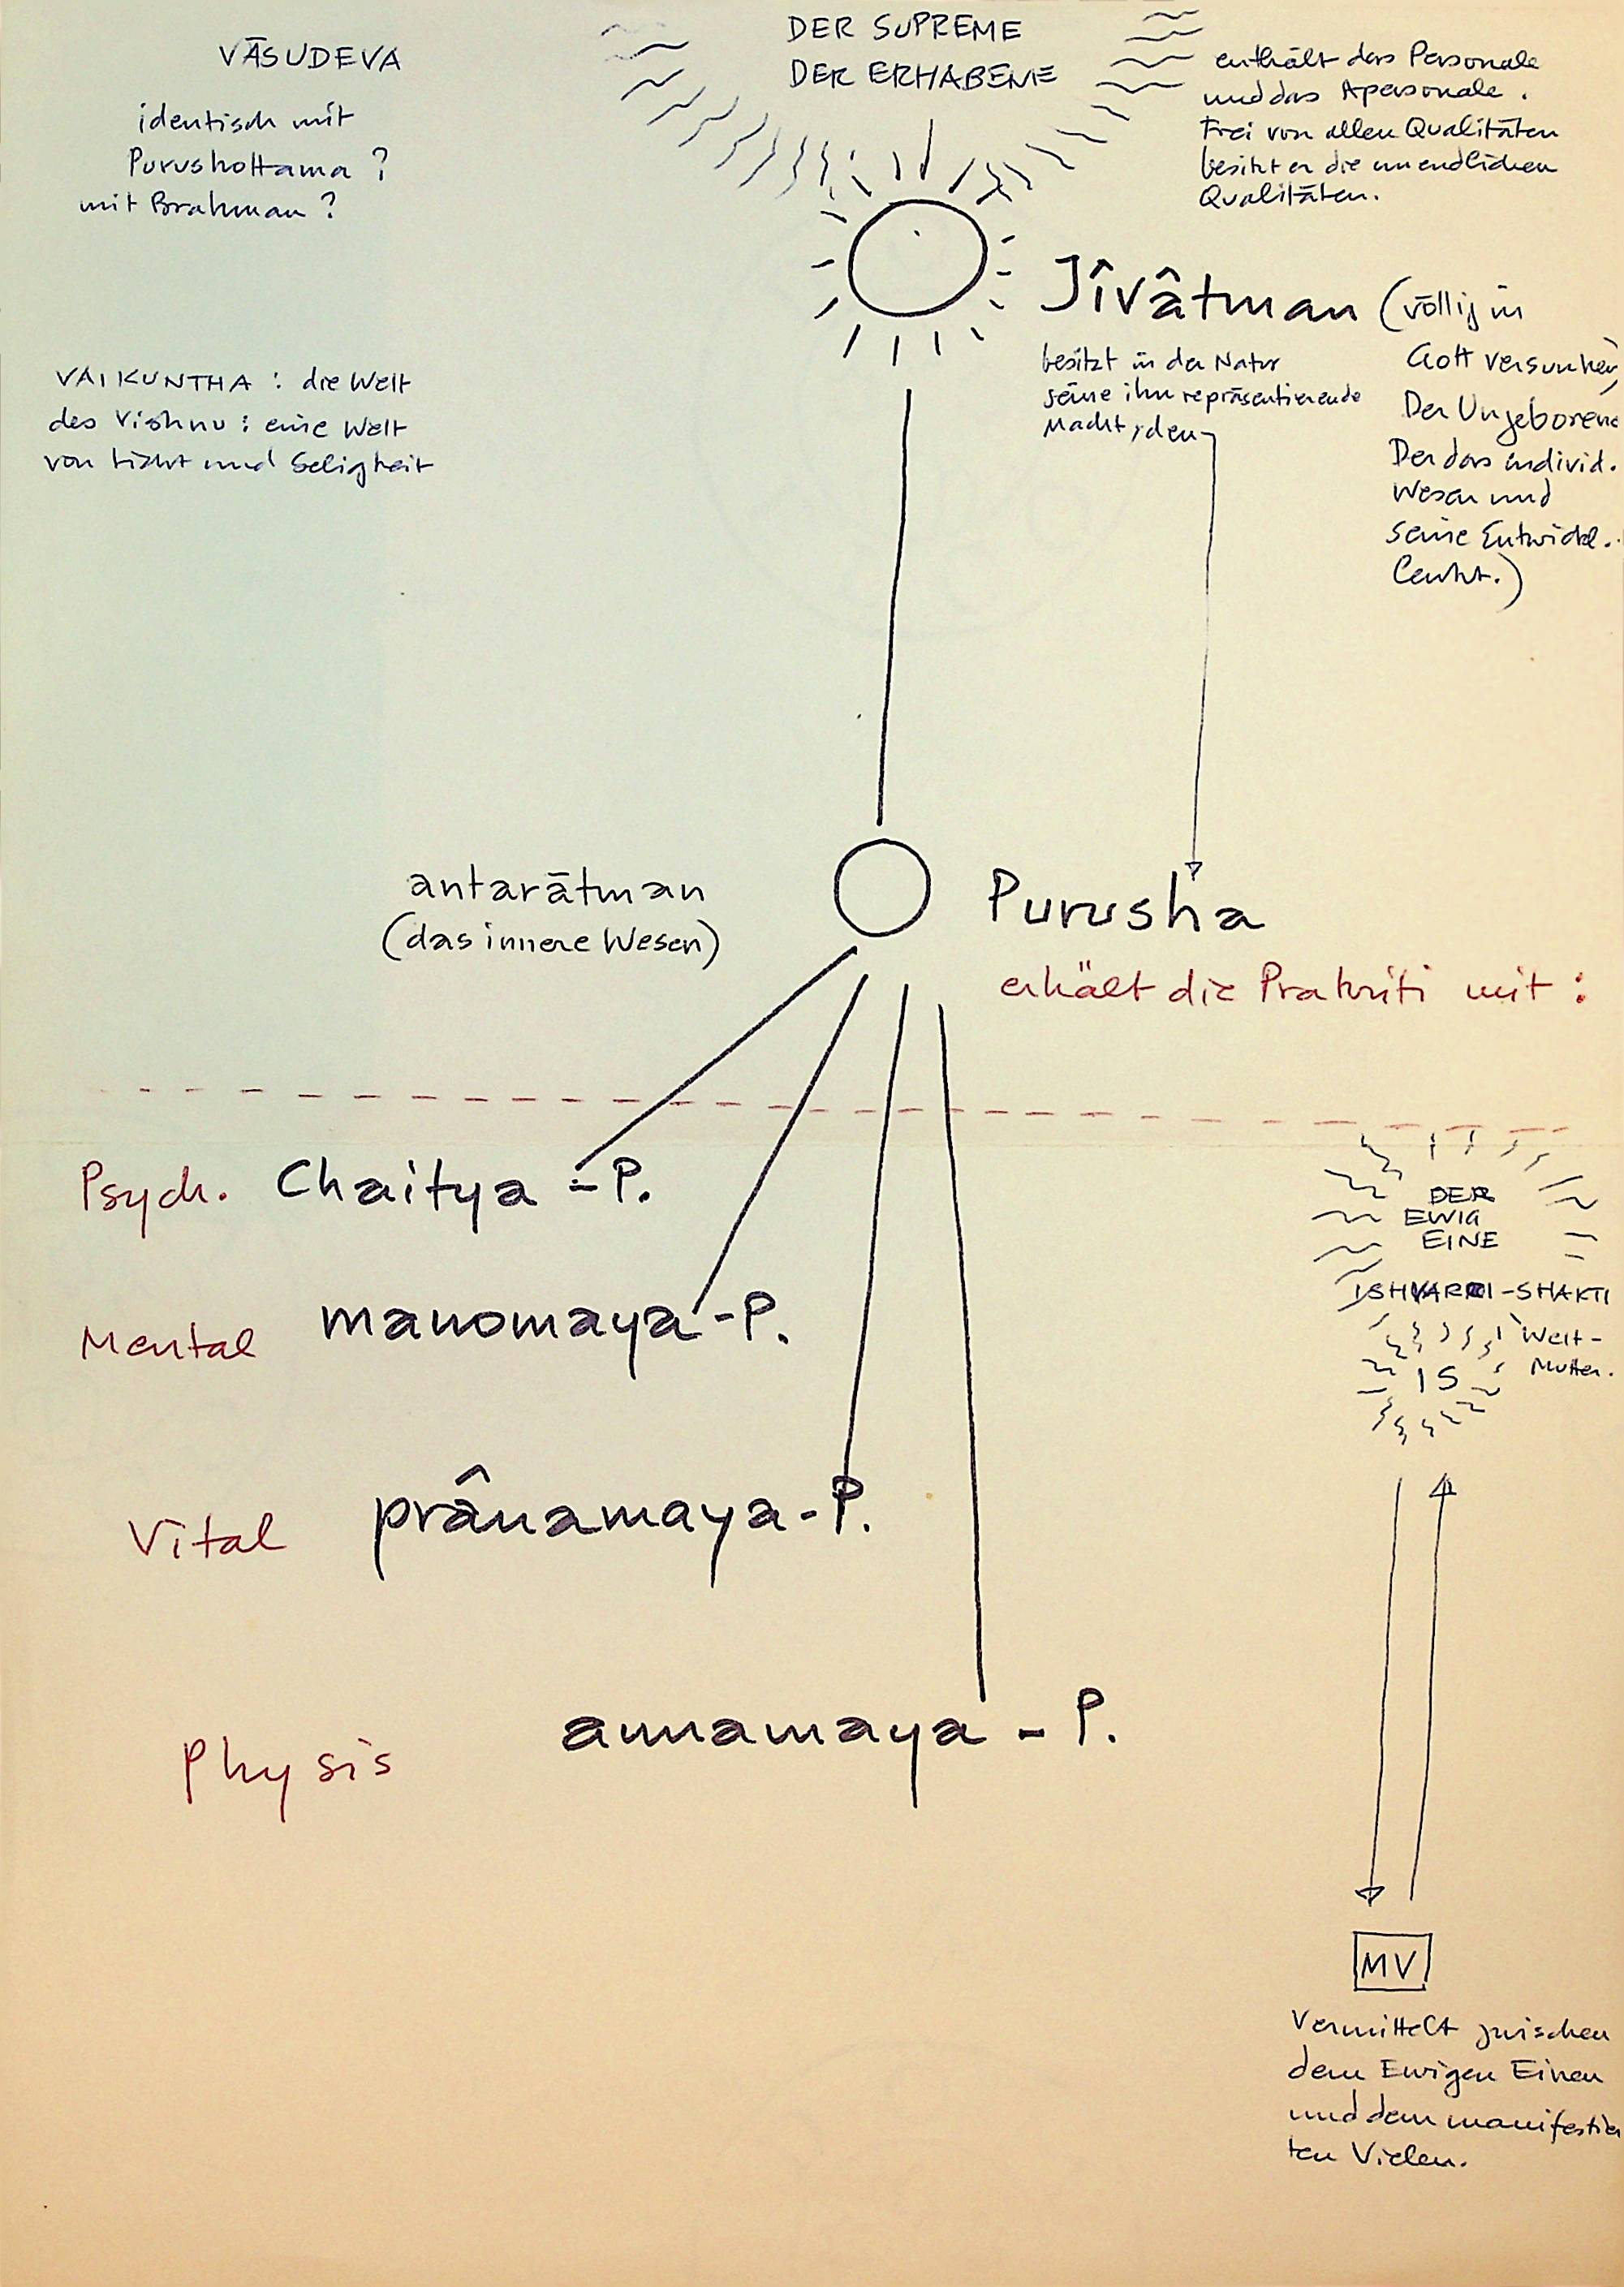 VĀSUDEVA
identisch mit
Purushottama ?
mit Brahman ?
DER SUPREME
DER ERHABENE
enthält das Personale
und das Apersonale.
Frei von allen Qualitäten
besitzt er die unendlichen
Qualitäten.
Jîvâtman (völlig in
Gott versunken,
Der Ungeborene
Der das individ.
Wesen und
seine Entwickl.
lenkt.)
besitzt in der Natur
seine ihn repräsentierende
Macht, den
VAIKUNTHA : die Welt
des Vishnu : eine Welt
von Licht und Seligkeit
antarātman
(das innere Wesen)
Purusha
erhält die Prakriti mit :
Psych. Chaitya - P.
Mental manomaya - P.
Vital prânamaya - P.
Physis annamaya - P.
DER
EWIG
EINE
-SHAKTI
Welt-
Mutter.
IS
MV
Vermittelt zwischen
dem Ewigen Einen
und dem manifestier
ten Vielen.